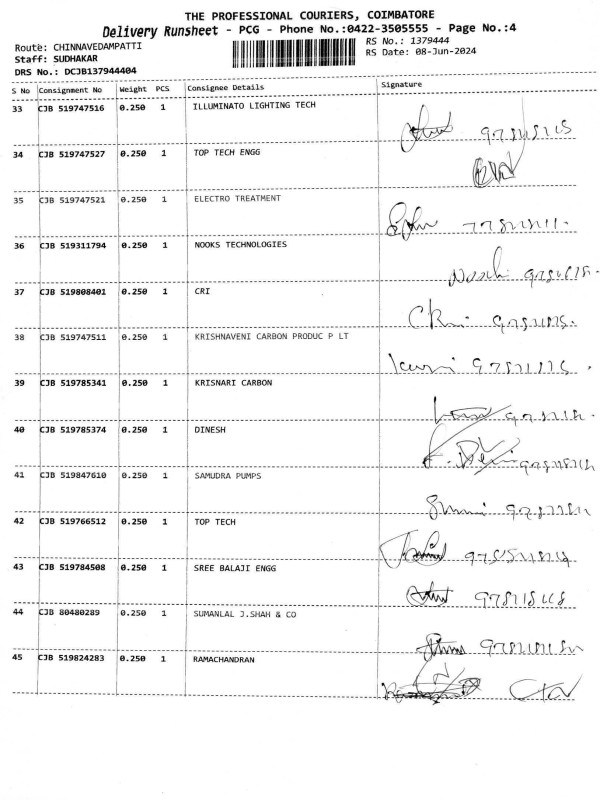 THE PROFESSIONAL COURIERS, COIMBATORE
Delivery Runsheet - PCG - Phone No.:0422-3505555 - Page No.:4
Route: CHINNAVEDAMPATTI
RS No.: 1379444
Staff: SUDHAKAR
RS Date: 08-Jun-2024
DRS No.: DCJB137944404
S No Consignment No Weight PCS Consignee Details Signature
33 CJB 519747516 0.250 1 ILLUMINATO LIGHTING TECH
34 CJB 519747527 0.250 1 TOP TECH ENGG
35 CJB 519747521 0.250 1 ELECTRO TREATMENT
36 CJB 519311794 0.250 1 NOOKS TECHNOLOGIES
37 CJB 519808401 0.250 1 CRI
38 CJB 519747511 0.250 1 KRISHNAVENI CARBON PRODUC P LT
39 CJB 519785341 0.250 1 KRISNARI CARBON
40 CJB 519785374 0.250 1 DINESH
41 CJB 519847610 0.250 1 SAMUDRA PUMPS
42 CJB 519766512 0.250 1 TOP TECH
43 CJB 519784508 0.250 1 SREE BALAJI ENGG
44 CJB 80480289 0.250 1 SUMANLAL J.SHAH & CO
45 CJB 519824283 0.250 1 RAMACHANDRAN